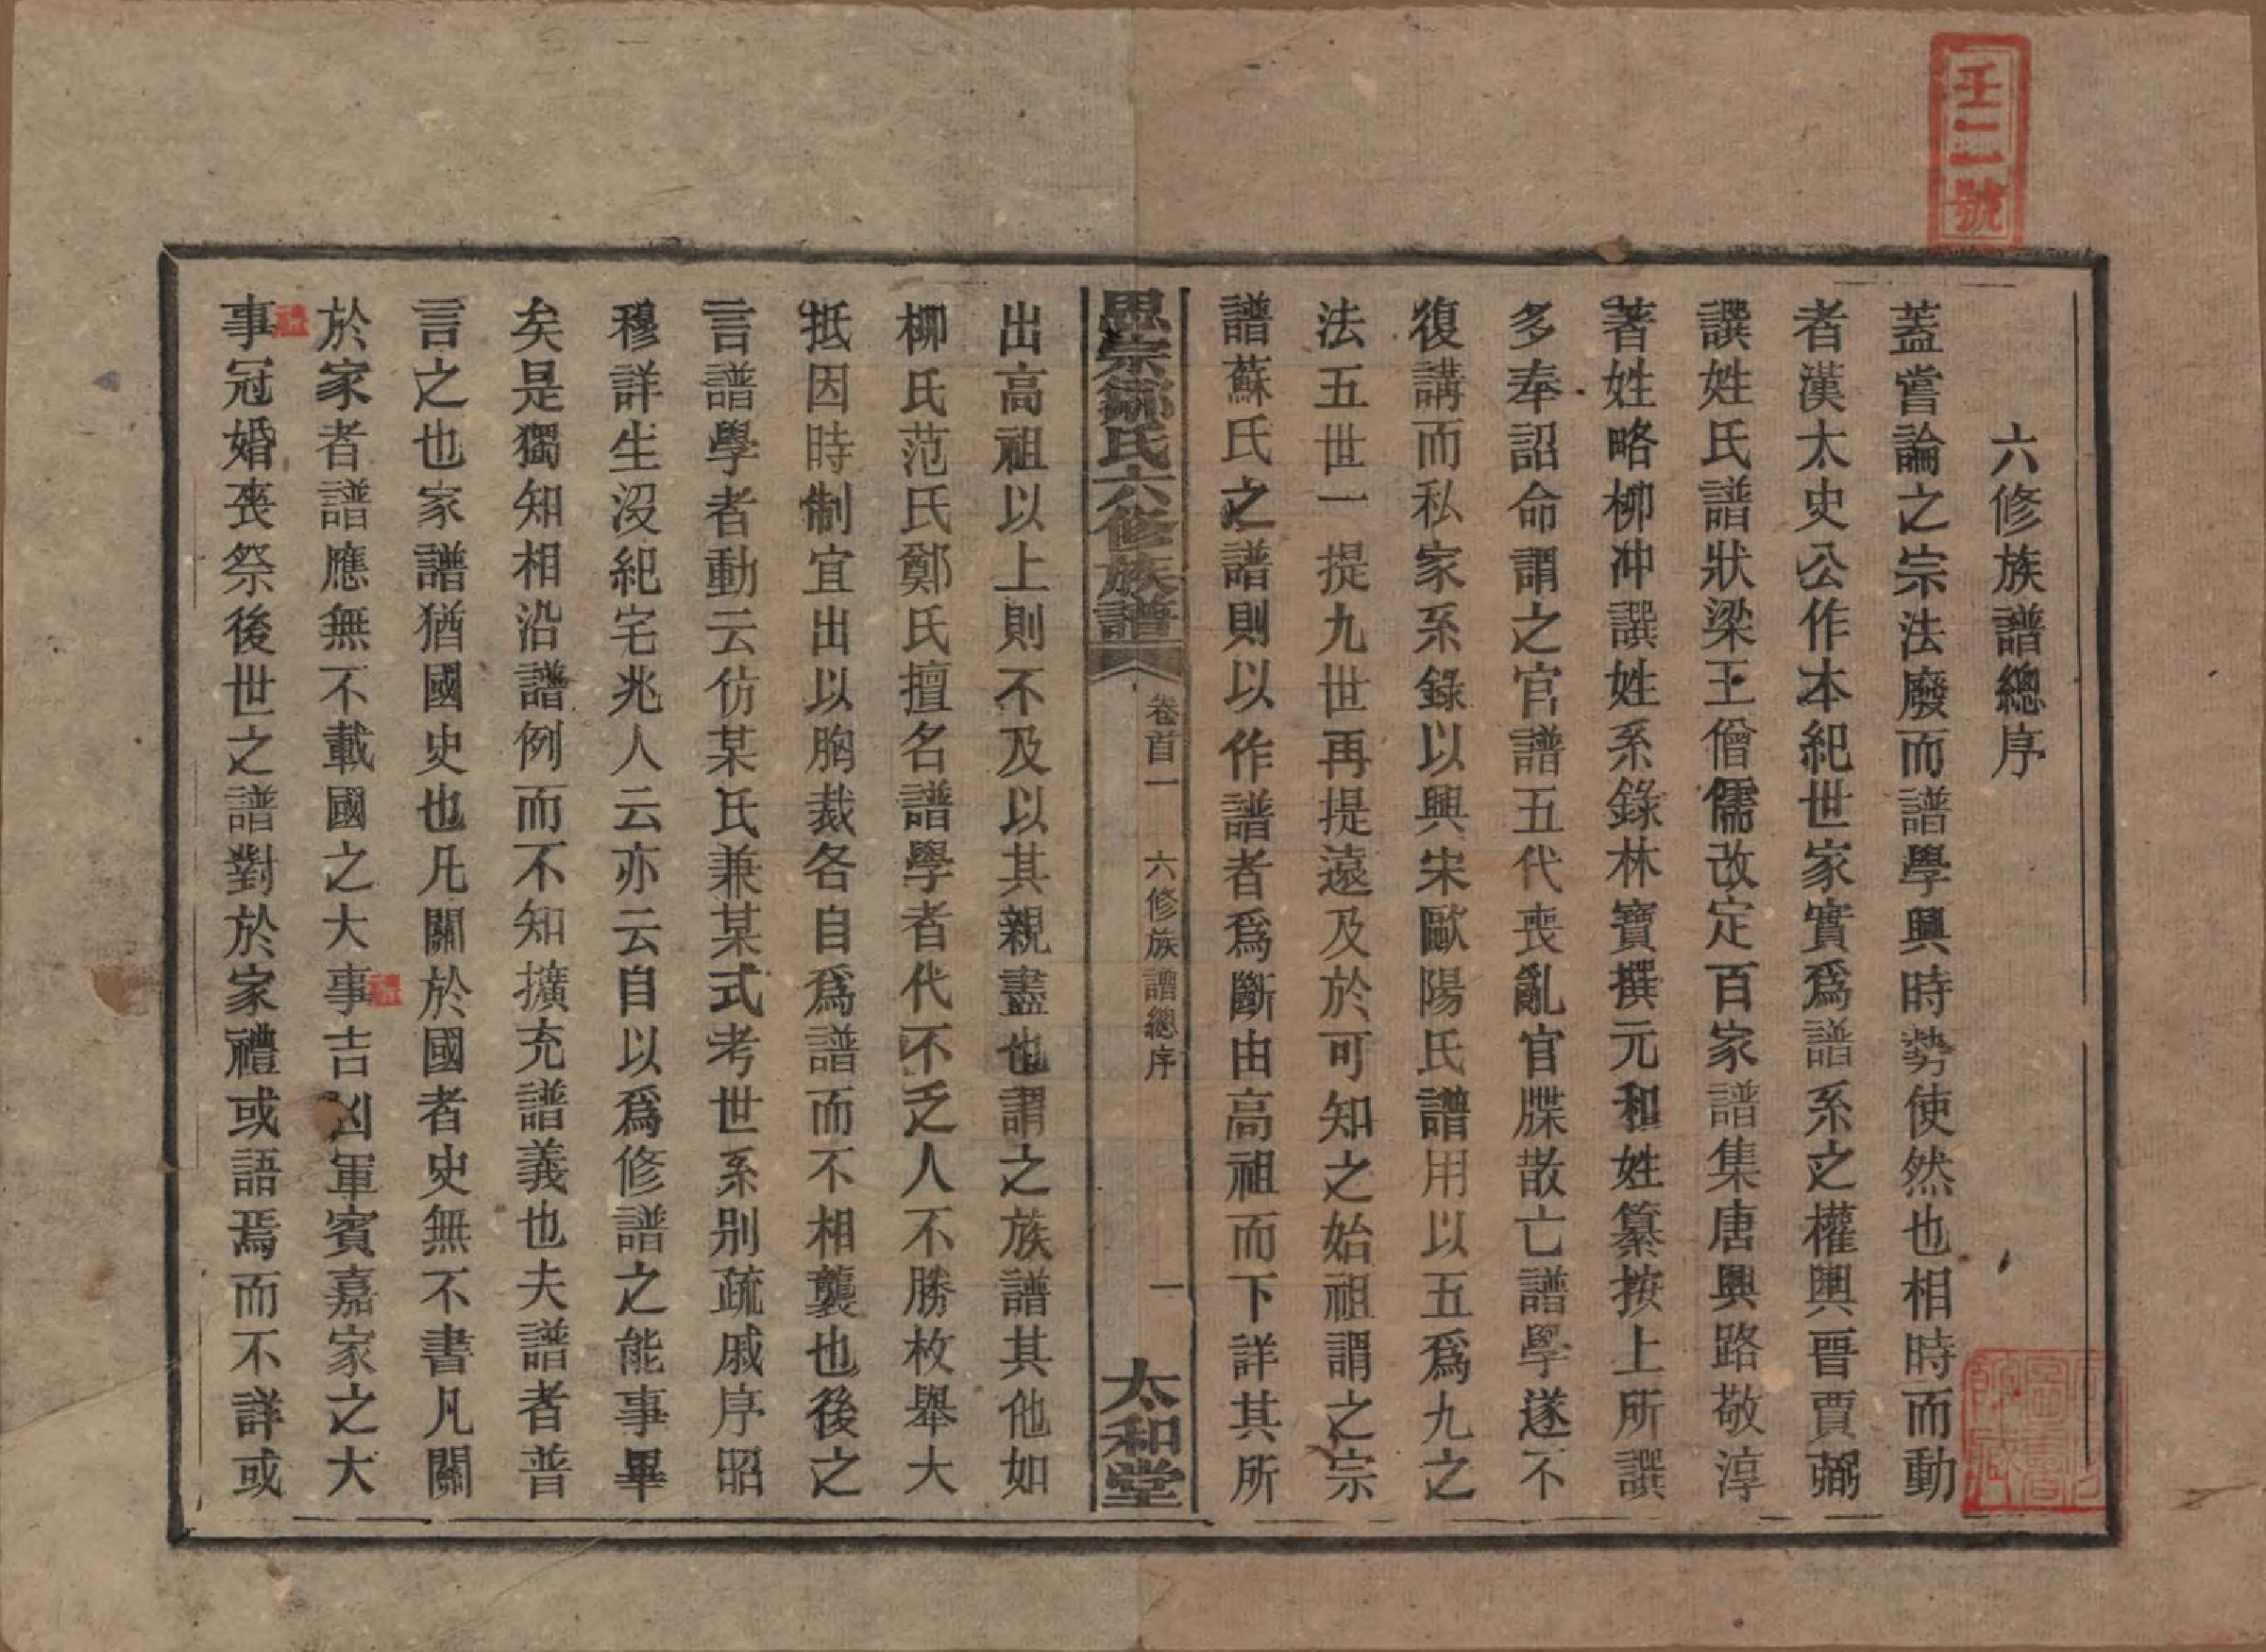 壬二號
六修族譜總序
蓋嘗論之宗法廢而譜學興時勢使然也相時而動
者漢太史公作本紀世家實爲譜系之權輿晉賈弼
譔姓氏譜狀梁王僧儒改定百家譜集唐興路敬淳
著姓略柳冲譔姓系錄林寶撰元和姓纂按上所譔
多奉詔命謂之官譜五代喪亂官牒散亡譜學遂不
復講而私家系錄以興宋歐陽氏譜用以五爲九之
法五世一提九世再提遠及於可知之始祖謂之宗
譜蘇氏之譜則以作譜者爲斷由高祖而下詳其所
思宗鄒氏六修族譜
卷首一
六修族譜總序
一
太和堂
出高祖以上則不及以其親盡也謂之族譜其他如
柳氏范氏鄭氏擅名譜學者代不乏人不勝枚舉大
抵因時制宜出以胸裁各自爲譜而不相襲也後之
言譜學者動云仿某氏兼某式考世系别疏戚序昭
穆詳生沒紀宅兆人云亦云自以爲修譜之能事畢
矣是獨知相沿譜例而不知擴充譜義也夫譜者普
言之也家譜猶國史也凡關於國者史無不書凡關
於家者譜應無不載國之大事吉凶軍賓嘉家之大
事冠婚喪祭後世之譜對於家禮或語焉而不詳或